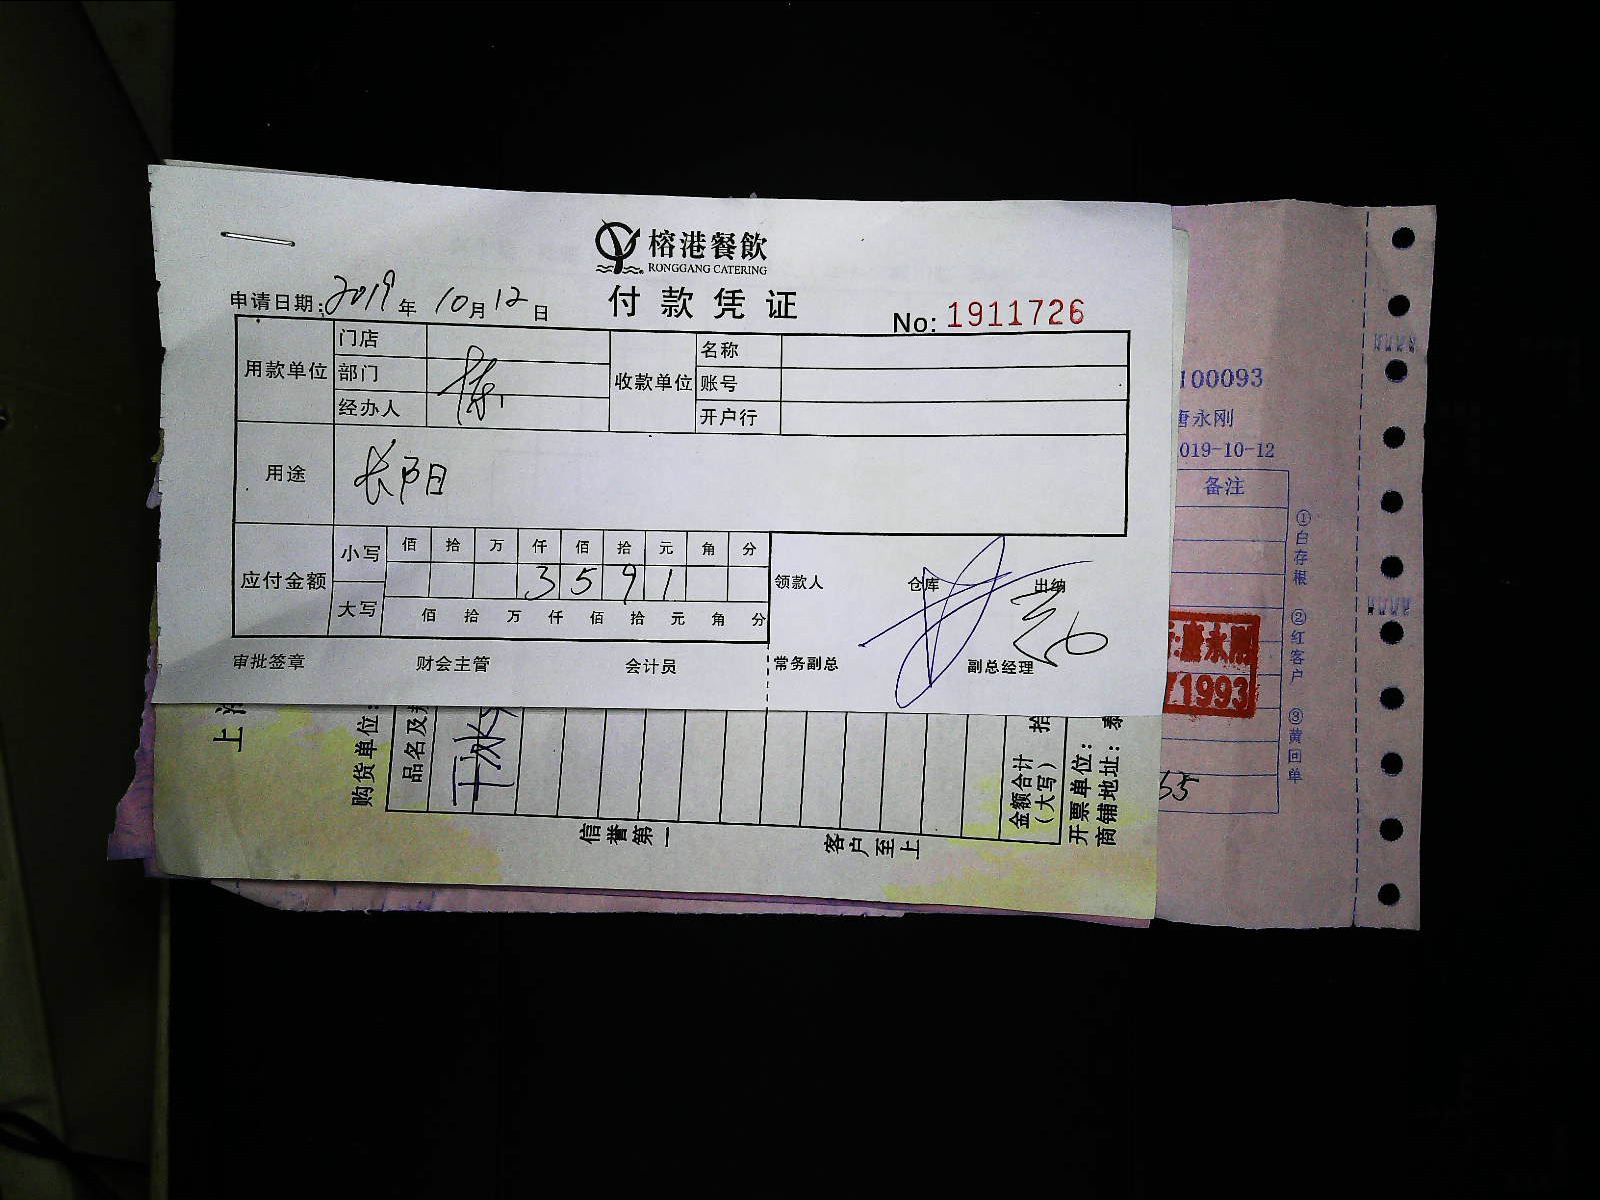 榕港餐飲
RONGGANG CATERING
付款凭证
申请日期: 2019年 10月12日
No: 1911726
用款单位 门店 收款单位 名称
部门 账号
经办人 陈 开户行
用途 长阳
应付金额 小写 佰 拾 万 仟 佰 拾 元 角 分
3 5 9 1
大写 佰 拾 万 仟 佰 拾 元 角 分
领款人 仓库 出纳
审批签章 财会主管 会计员 常务副总 副总经理
上
购货单位:
品名及
干冰
金额合计(大写) 拾
开票单位:
商铺地址: 泰
信誉第一 客户至上
100093
唐永刚
019-10-12
备注
①白存根 ②红客户 ③黄回单
唐永刚
71993
55